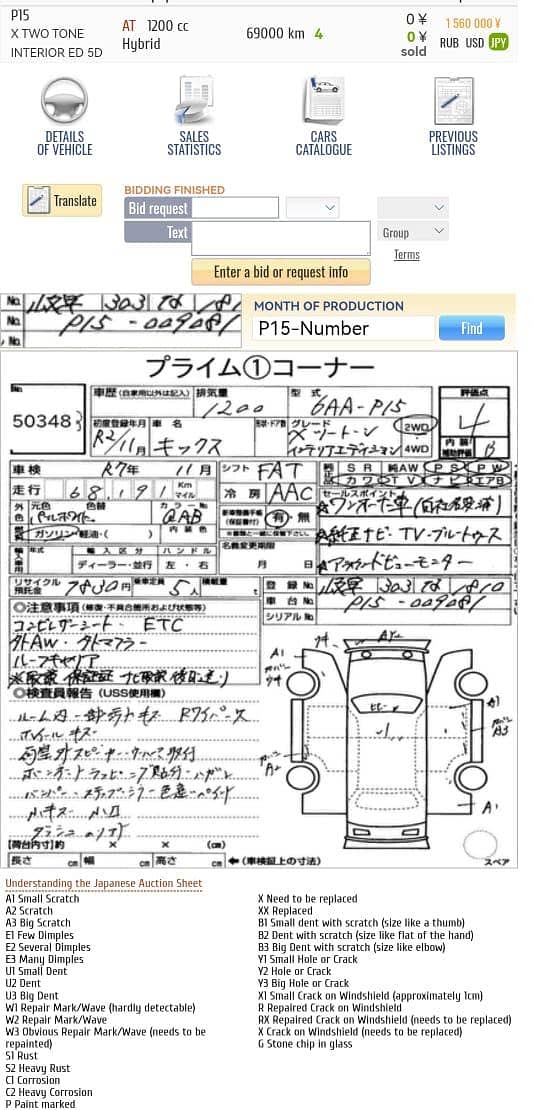 P15
X TWO TONE
INTERIOR ED 5D
AT 1200 cc
Hybrid
69000 km 4
0 ¥
0 ¥
sold
1 560 000 ¥
RUB USD JPY
DETAILS
OF VEHICLE
SALES
STATISTICS
CARS
CATALOGUE
PREVIOUS
LISTINGS
Translate
BIDDING FINISHED
Bid request
Text
Group
Terms
Enter a bid or request info
No. 303
No. P15-009081
No.
MONTH OF PRODUCTION
P15-Number
Find
プライム①コーナー
50348
車歴(自家用以外は記入) 排気量 型式 評価点
1200 6AA-P15 4
初度登録年月 車名 グレード 2WD
R2/11月 キックス Xツートーン
インテリアエディション 4WD B
車検 R7年 11月 シフト FAT SR 純AW PS PW
走行 68,191 Km マイル 冷房 AAC カワ TV ナビ エアB
外色 元色 色替 カラーNo. セールスポイント
パールホワイト QAB 有・無 ★ワンオーナー車
燃料 ガソリン・軽油・( ) 内装色 ★純正ナビ・TV・ブルートゥース
年式 輸入区分 ハンドル 名義変更期限
ディーラー・並行 左・右 月 日 ★アラウンドビューモニター
リサイクル預託金 7830円 乗車定員 5人 積載量 t 登録No. 303
車台No. P15-009081
シリアルNo.
◎注意事項(修復・不具合箇所および状態等)
コンビレザーシート・ETC
外AW・外マフラー
ルーフキャリア
◎検査員報告(USS使用欄)
ルーム内一部汚れキズ Rワイパーレス
ホイールキズ
小キズ 小凹
A1
A2
A1
A3
A1
[荷台内寸]約 × × (cm)
長さ cm 幅 cm 高さ cm ←(車検証上の寸法) スペア
Understanding the Japanese Auction Sheet
A1 Small Scratch
A2 Scratch
A3 Big Scratch
E1 Few Dimples
E2 Several Dimples
E3 Many Dimples
U1 Small Dent
U2 Dent
U3 Big Dent
W1 Repair Mark/Wave (hardly detectable)
W2 Repair Mark/Wave
W3 Obvious Repair Mark/Wave (needs to be
repainted)
S1 Rust
S2 Heavy Rust
C1 Corrosion
C2 Heavy Corrosion
P Paint marked
X Need to be replaced
XX Replaced
B1 Small dent with scratch (size like a thumb)
B2 Dent with scratch (size like flat of the hand)
B3 Big Dent with scratch (size like elbow)
Y1 Small Hole or Crack
Y2 Hole or Crack
Y3 Big Hole or Crack
X1 Small Crack on Windshield (approximately 1cm)
R Repaired Crack on Windshield
RX Repaired Crack on Windshield (needs to be replaced)
X Crack on Windshield (needs to be replaced)
G Stone chip in glass